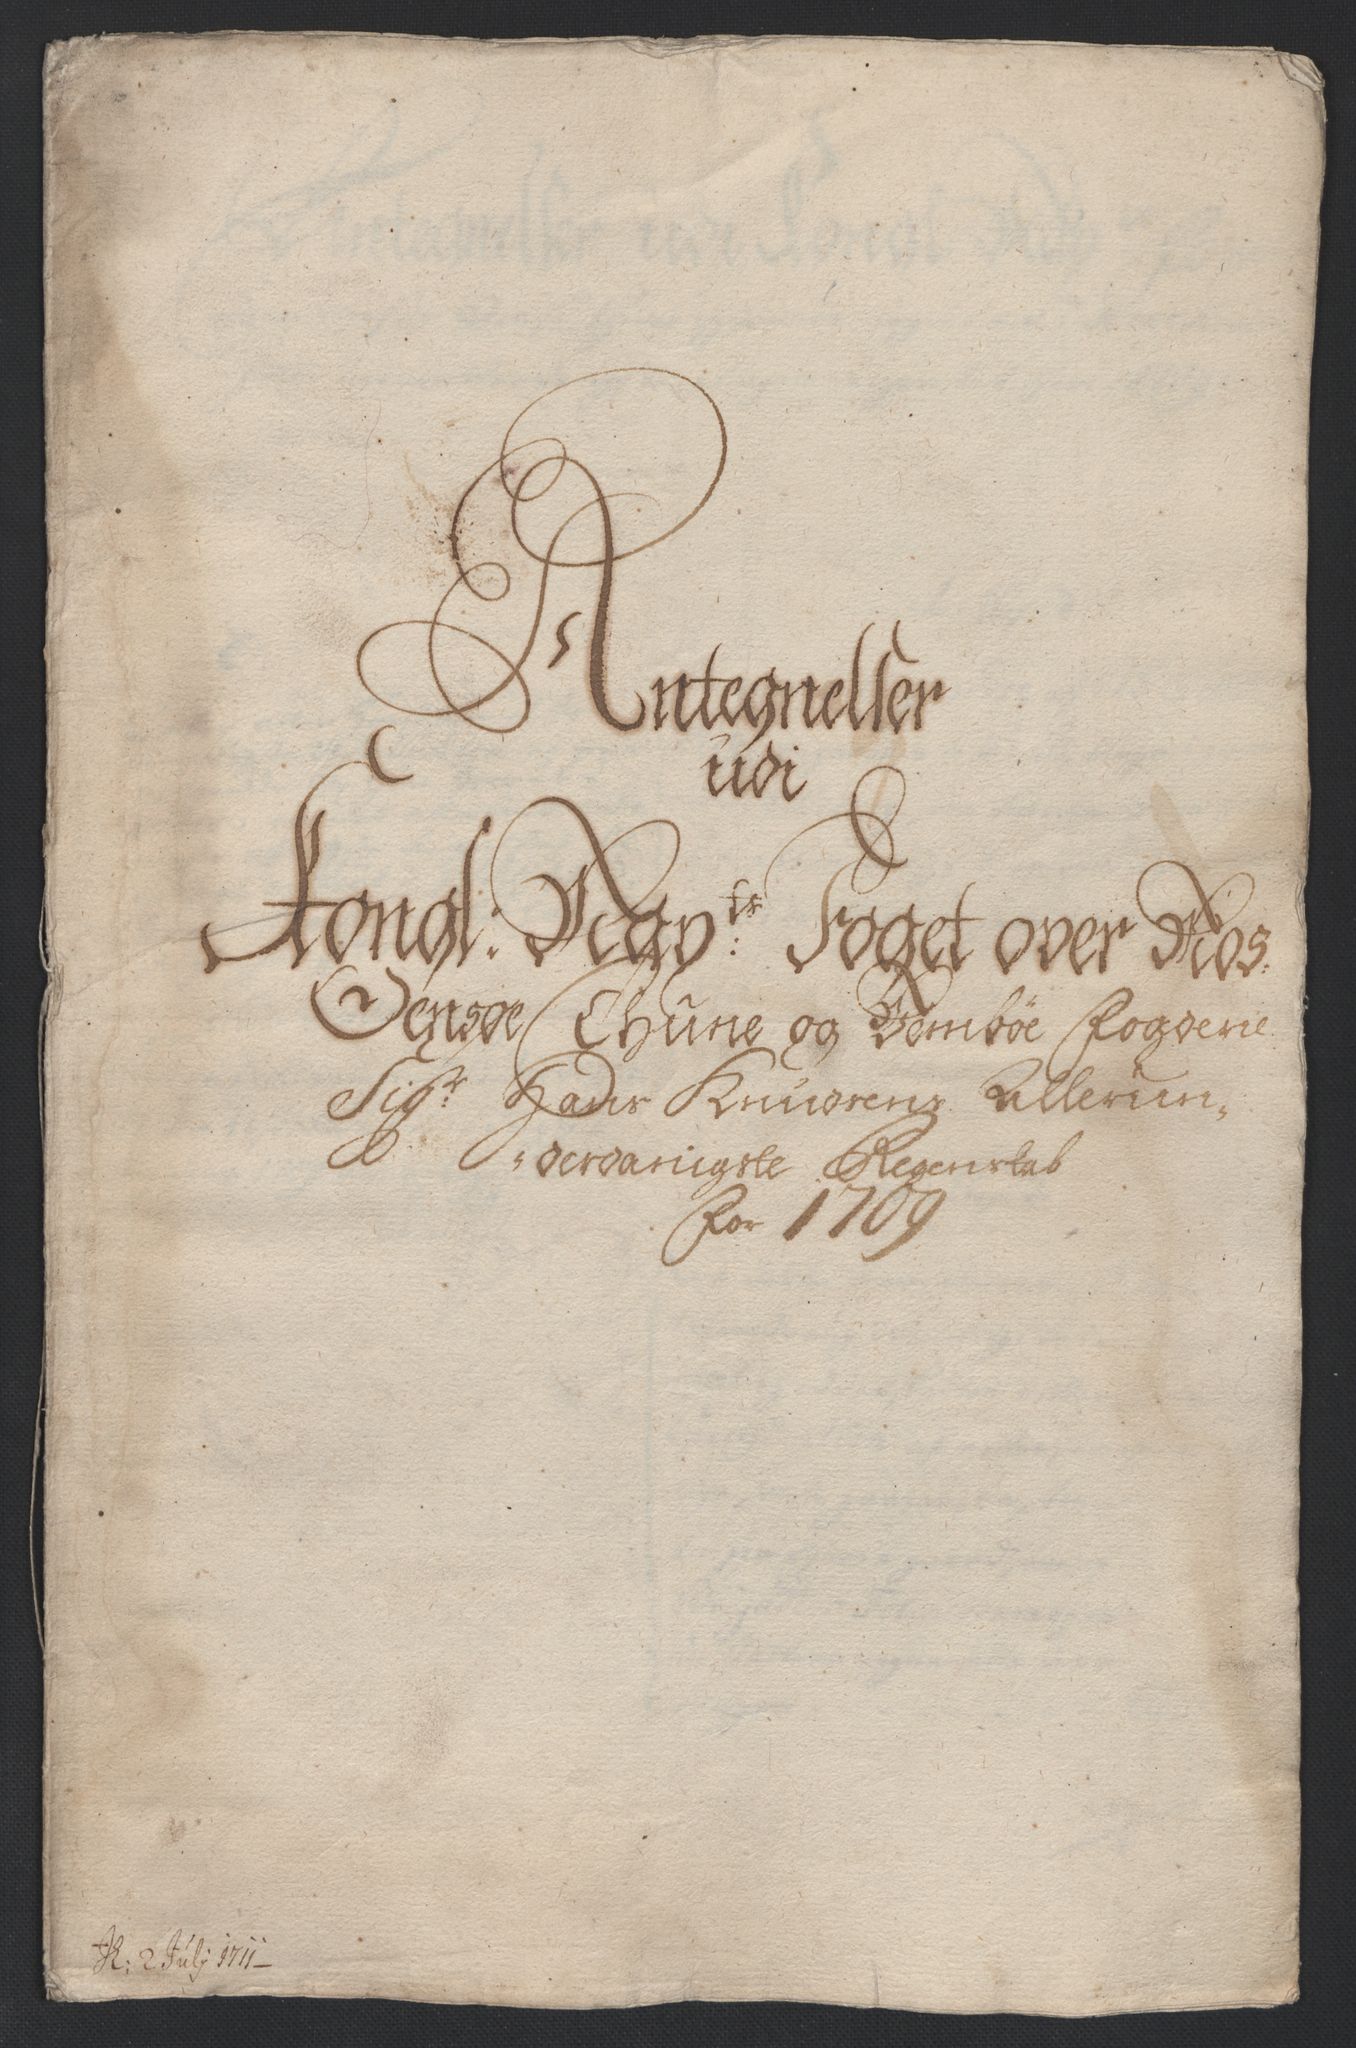 Antegnelser
udi
Kongl: May:ts Foget over Aos
Vensøe Thune og Vembøe Fogderie
Sig:r Hans Knudsens Allerun„
„derdanigste Regenskab
for 1709
R: 2 Julj 1711